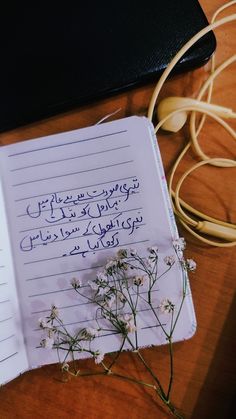 تیری صورت سے ہے عالم میں
بہاروں کو ثبات
تیری آنکھوں کے سوا دنیا میں
رکھا کیا ہے